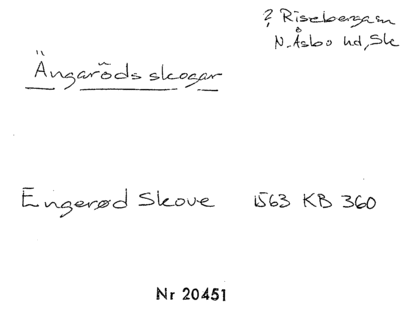 ? Riseberga sn
N. Åsbo hd, Sk
Ängaröds skogar
Engerød Skove 1563 KB 360
Nr 20451